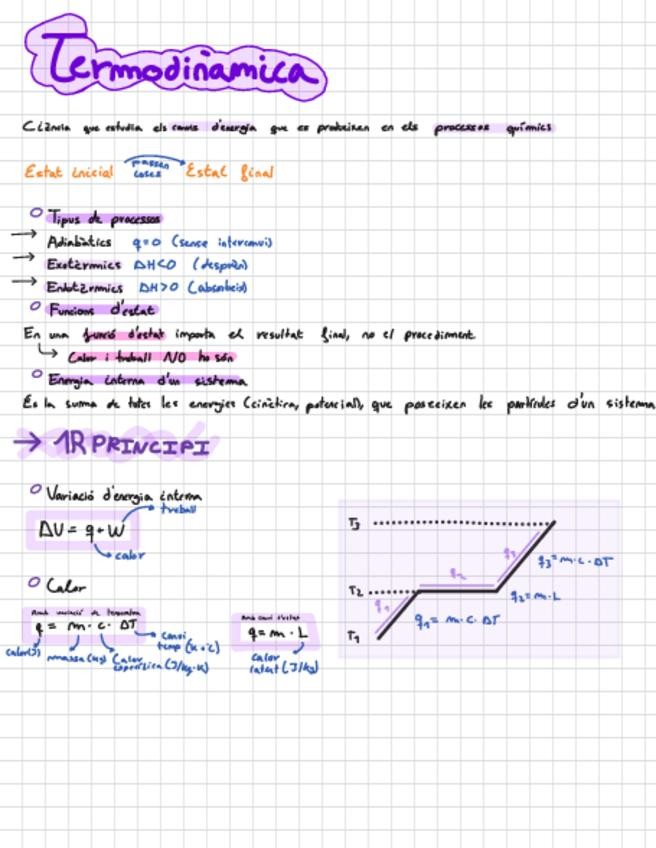 Termodinàmica
Ciència que estudia els canvis d'energia que es produeixen en els processos químics
Estat inicial passen coses Estat final
Tipus de processos
→ Adiabàtics q=0 (sense intercanvi)
→ Exotèrmics ΔH<0 (desprèn)
→ Endotèrmics ΔH>0 (absorbeix)
Funcions d'estat
En una funció d'estat importa el resultat final, no el procediment.
Calor i treball NO ho són
Energia interna d'un sistema
És la suma de totes les energies (cinètica, potencial), que posseeixen les partícules d'un sistema
→ 1R PRINCIPI
Variació d'energia interna
treball
ΔU = q + W
calor
Calor
Amb variació de temperatura
q = m · c · ΔT
calor(J)
massa(kg)
Calor específica (J/kg·K)
canvi temp (K o °C)
Amb canvi d'estat
q = m · L
calor latent (J/kg)
T3
T2
T1
q1
q2
q3
q3 = m · c · ΔT
q2 = m · L
q1 = m · c · ΔT